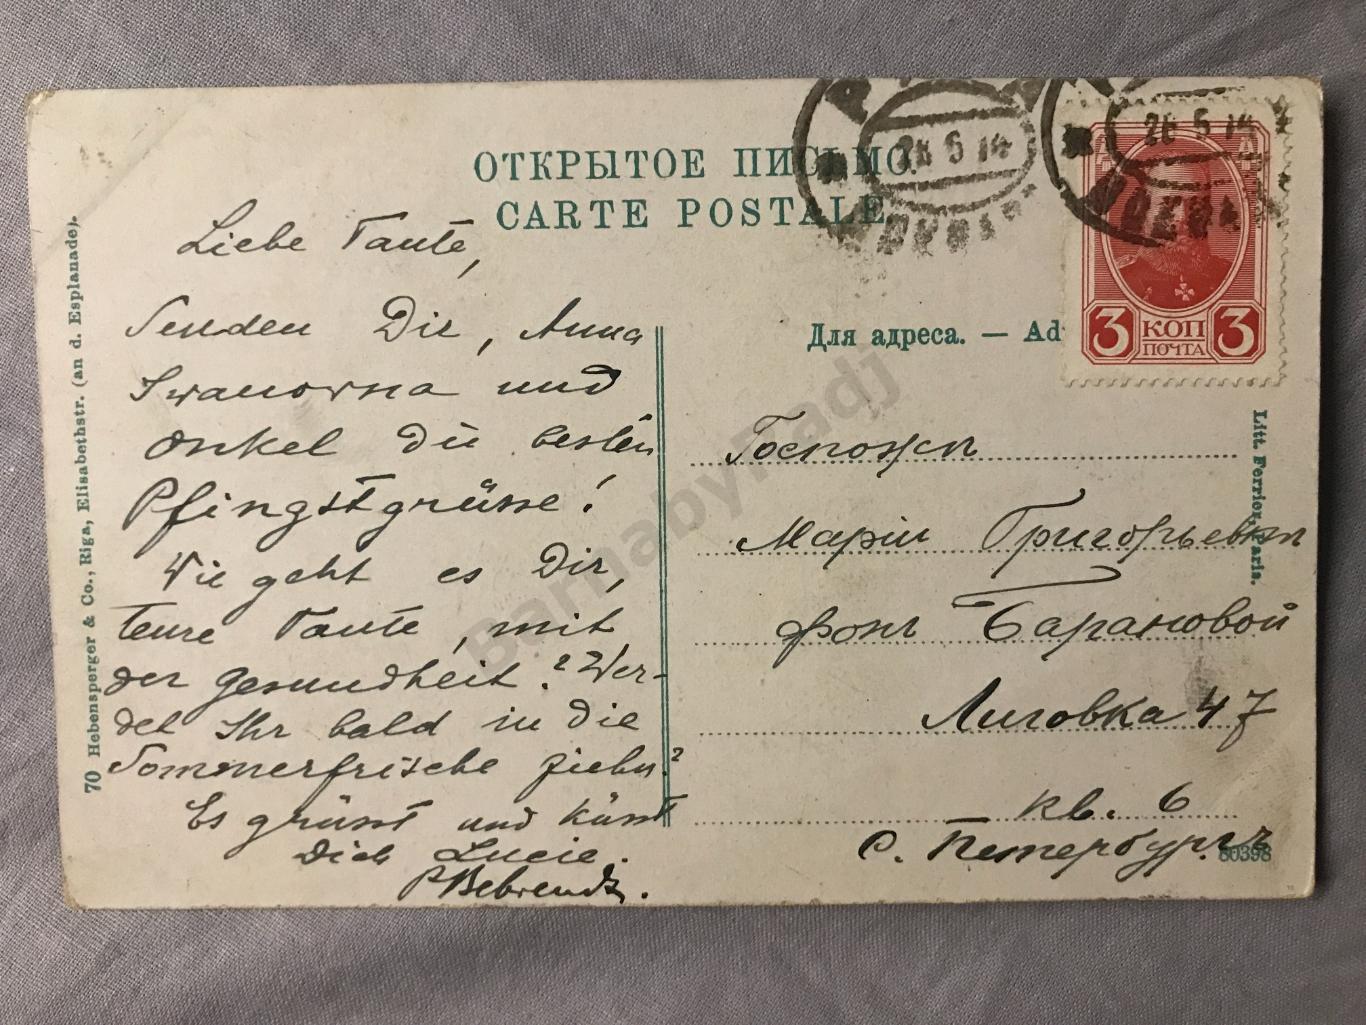 ОТКРЫТОЕ ПИСЬМО.
CARTE POSTALE
Liebe Tante,
Senden Dir, Anna
Iwanowna und
Onkel die besten
Pfingstgrüsse!
Wie geht es Dir,
teure Tante, mit
der Gesundheit? Wer-
det Ihr bald in die
Sommerfrische ziehn?
Es grüsst und küsst
Dich Lucie.
Behrendt.
70 Hebensperger & Co., Riga, Elisabethstr. (an d. Esplanade).
Для адреса. — Ad
26 5 14
26 5 14
3 КОП 3
ПОЧТА
Госпожѣ
Маріи Григорьевнѣ
фонъ Барановой
Лиговка 47
кв. 6
С. Петербургъ
80398
Litt. Ferrier, Paris.
BarnabyRadj